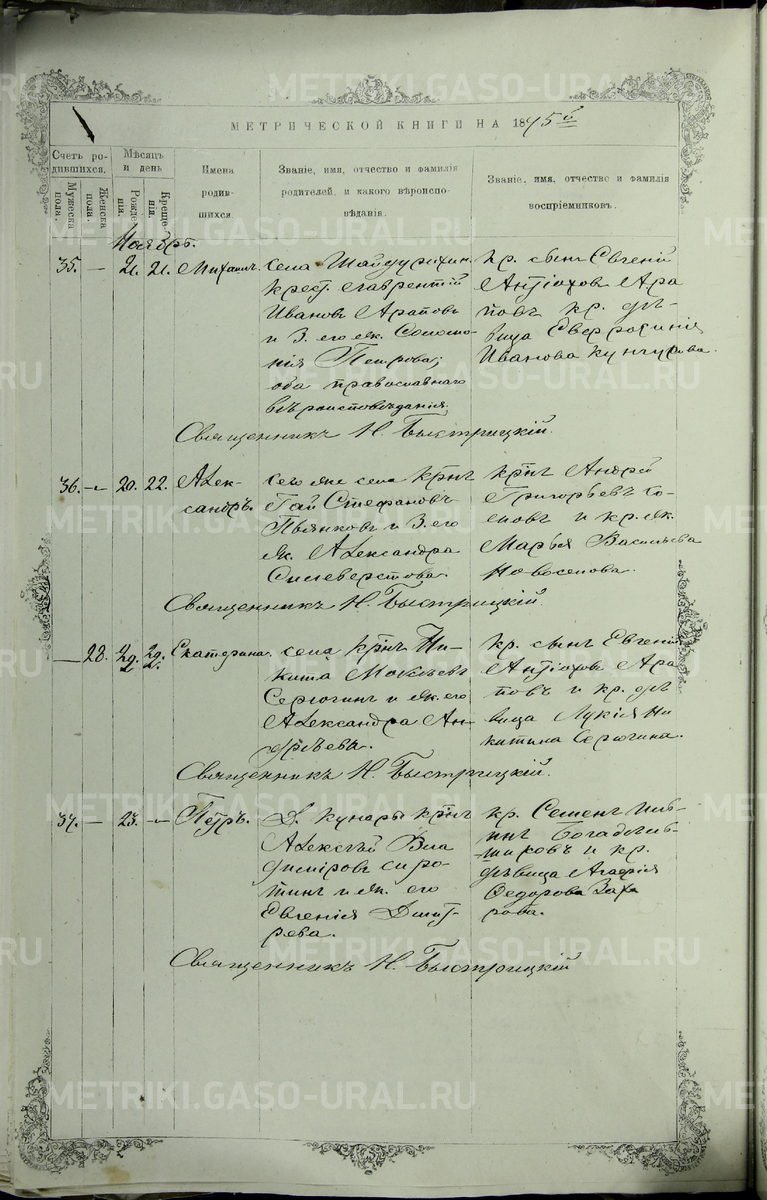 МЕТРИЧЕСКОЙ КНИГИ НА 1895 й
Счетъ ро-
дившихся.
Мужеска
пола.
Женска
пола.
Мѣсяцъ
и день
Рожде-
нія.
Креще-
нія.
Имена
родив-
шихся.
Званіе, имя, отчество и фамилія
родителей, и какого вѣроиспо-
вѣданія.
Званіе, имя, отчество и фамилія
воспріемниковъ.
Ноябрь.
35. — 21. 21. Михаилъ.
села Шайдурихин.
крест. Лаврентій
Ивановъ Араповъ
и З. его ж. Соломо-
нія Петрова;
оба православнаго
вѣроисповѣданія.
кр. сынъ Евгеній
Антіоховъ Ара
повъ кр. дѣ-
вица Евфросинія
Иванова Кунгурова.
Священникъ Н. Быстрицкій.
36. — 20. 22. Алек-
сандръ.
Сего же села крнъ
Гай Стефановъ
Пьянковъ и З. его
ж. Александра
Силеверстова.
крнъ Андрей
Григорьевъ
и кр. ж.
Марья Васильева
Новоселова.
Священникъ Н. Быстрицкій.
— 28. Екатерина.
села крнъ Ни-
кита Моисѣевъ
Серюгинъ и ж. его
Александра Ан-
дрѣева.
кр. сынъ Евгеній
Антіоховъ Ара
повъ и кр. дѣ
вица Лукія Ни
китина Серюгина.
Священникъ Н. Быстрицкій.
37. — 23. — Петръ.
Д. Кунары крнъ
Алексѣй Вла
диміровъ Сиро-
тинъ и ж. его
Евгенія Дмит-
рева.
кр. Семенъ Иль-
инъ Богадѣль-
щиковъ и кр.
дѣвица Агафія
Федорова Заха
рова.
Священникъ Н. Быстрицкій
METRIKI.GASO-URAL.RU